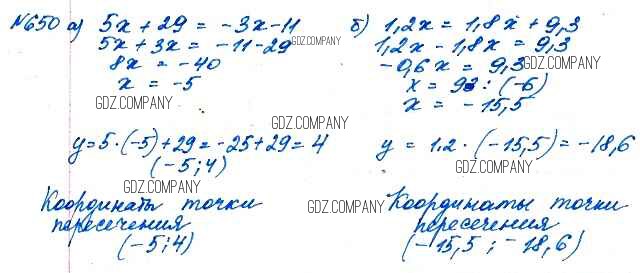 №650 а) 5x + 29 = -3x - 11
5x + 3x = -11 - 29
8x = -40
x = -5
y = 5 · (-5) + 29 = -25 + 29 = 4
(-5; 4)
Координаты точки
пересечения
(-5; 4)
б) 1,2x = 1,8x + 9,3
1,2x - 1,8x = 9,3
-0,6x = 9,3
x = 93 : (-6)
x = -15,5
y = 1.2 · (-15,5) = -18,6
Координаты точки
пересечения
(-15,5; -18,6)
GDZ.COMPANY
GDZ.COMPANY
GDZ.COMPANY
GDZ.COMPANY
GDZ.COMPANY
GDZ.COMPANY
GDZ.COMPANY
GDZ.COMPANY